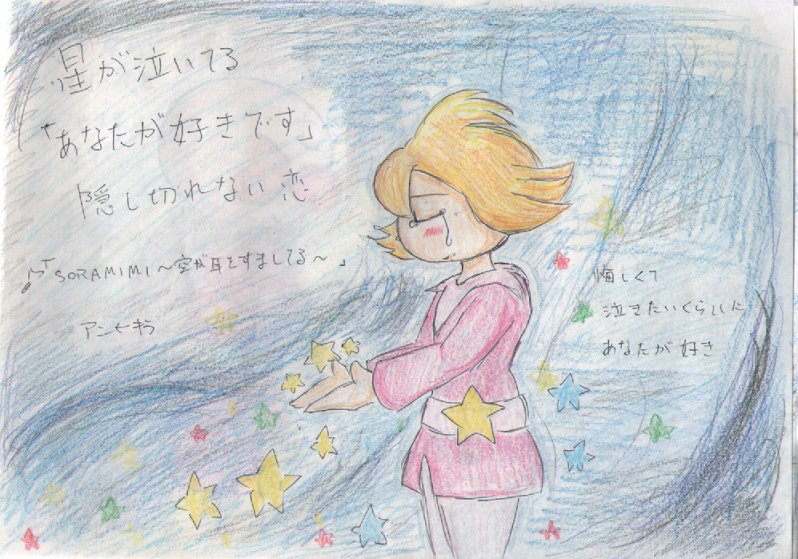 星が泣いてる
「あなたが好きです」
隠し切れない恋
♪「SORAMIMI〜空が耳をすましてる〜」
アンヒキラ
悔しくて
泣きたいくらいに
あなたが好き